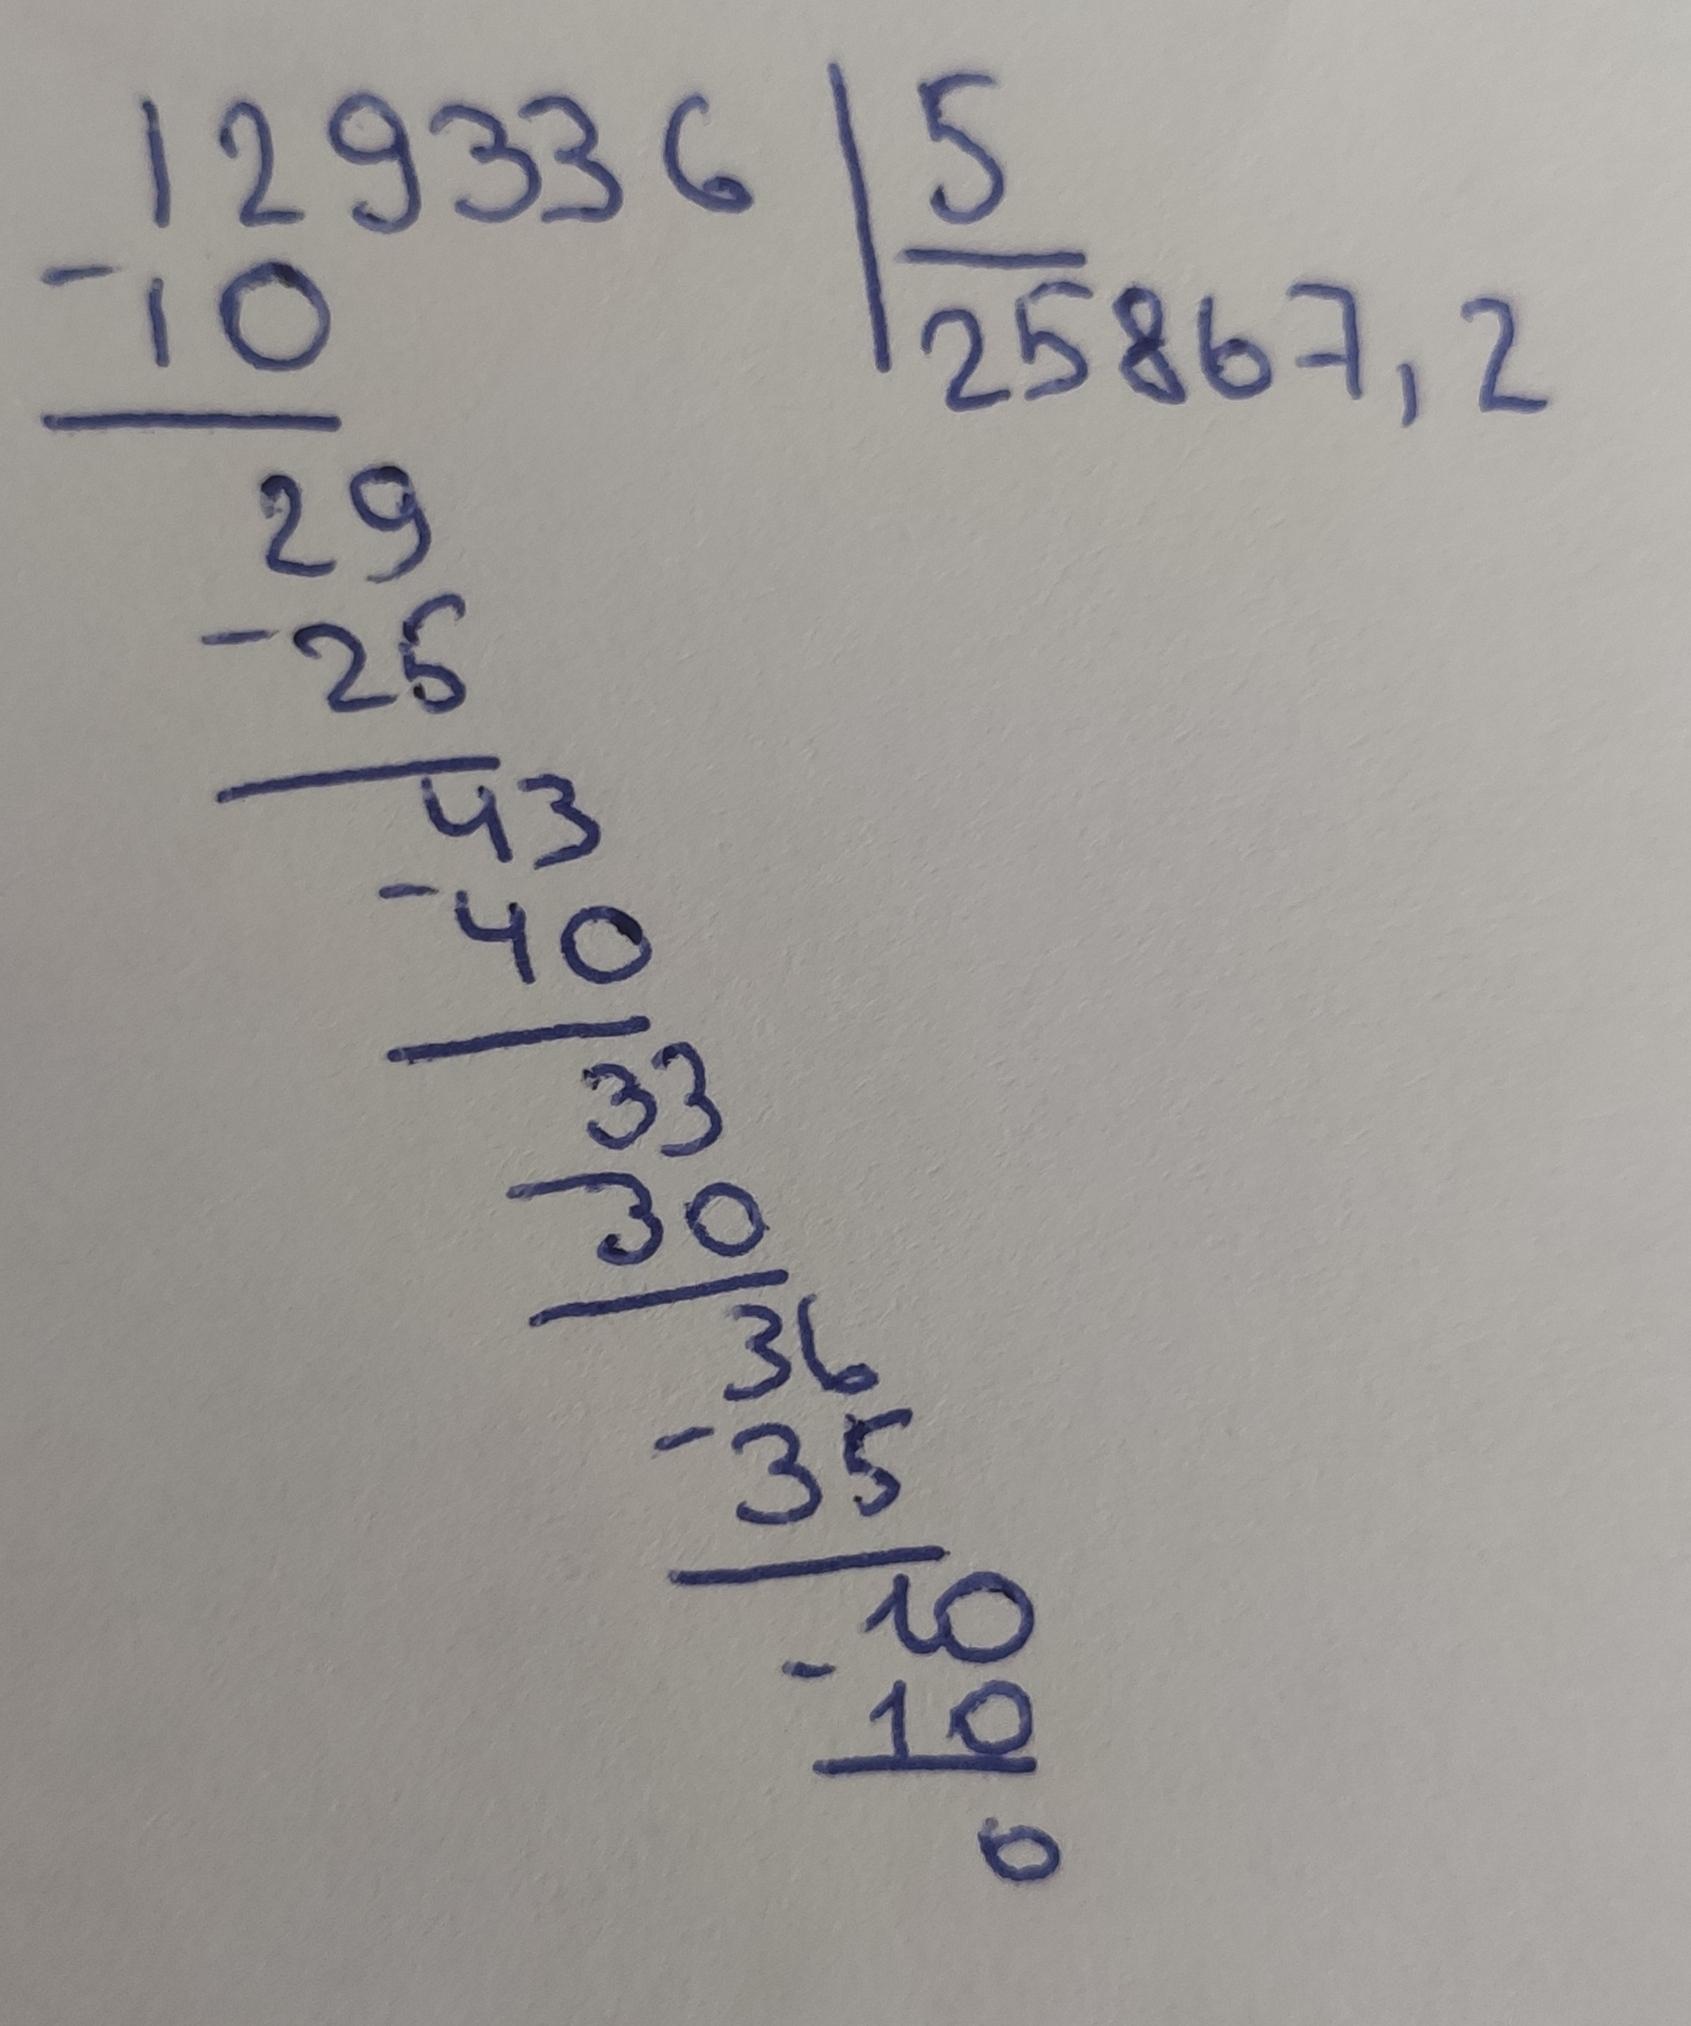 129336 | 5
-10 25867,2
29
-25
43
-40
33
-30
36
-35
10
-10
0